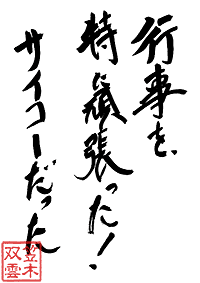 行事を、
特に頑張った!
サイコーだった
笠木
双雲